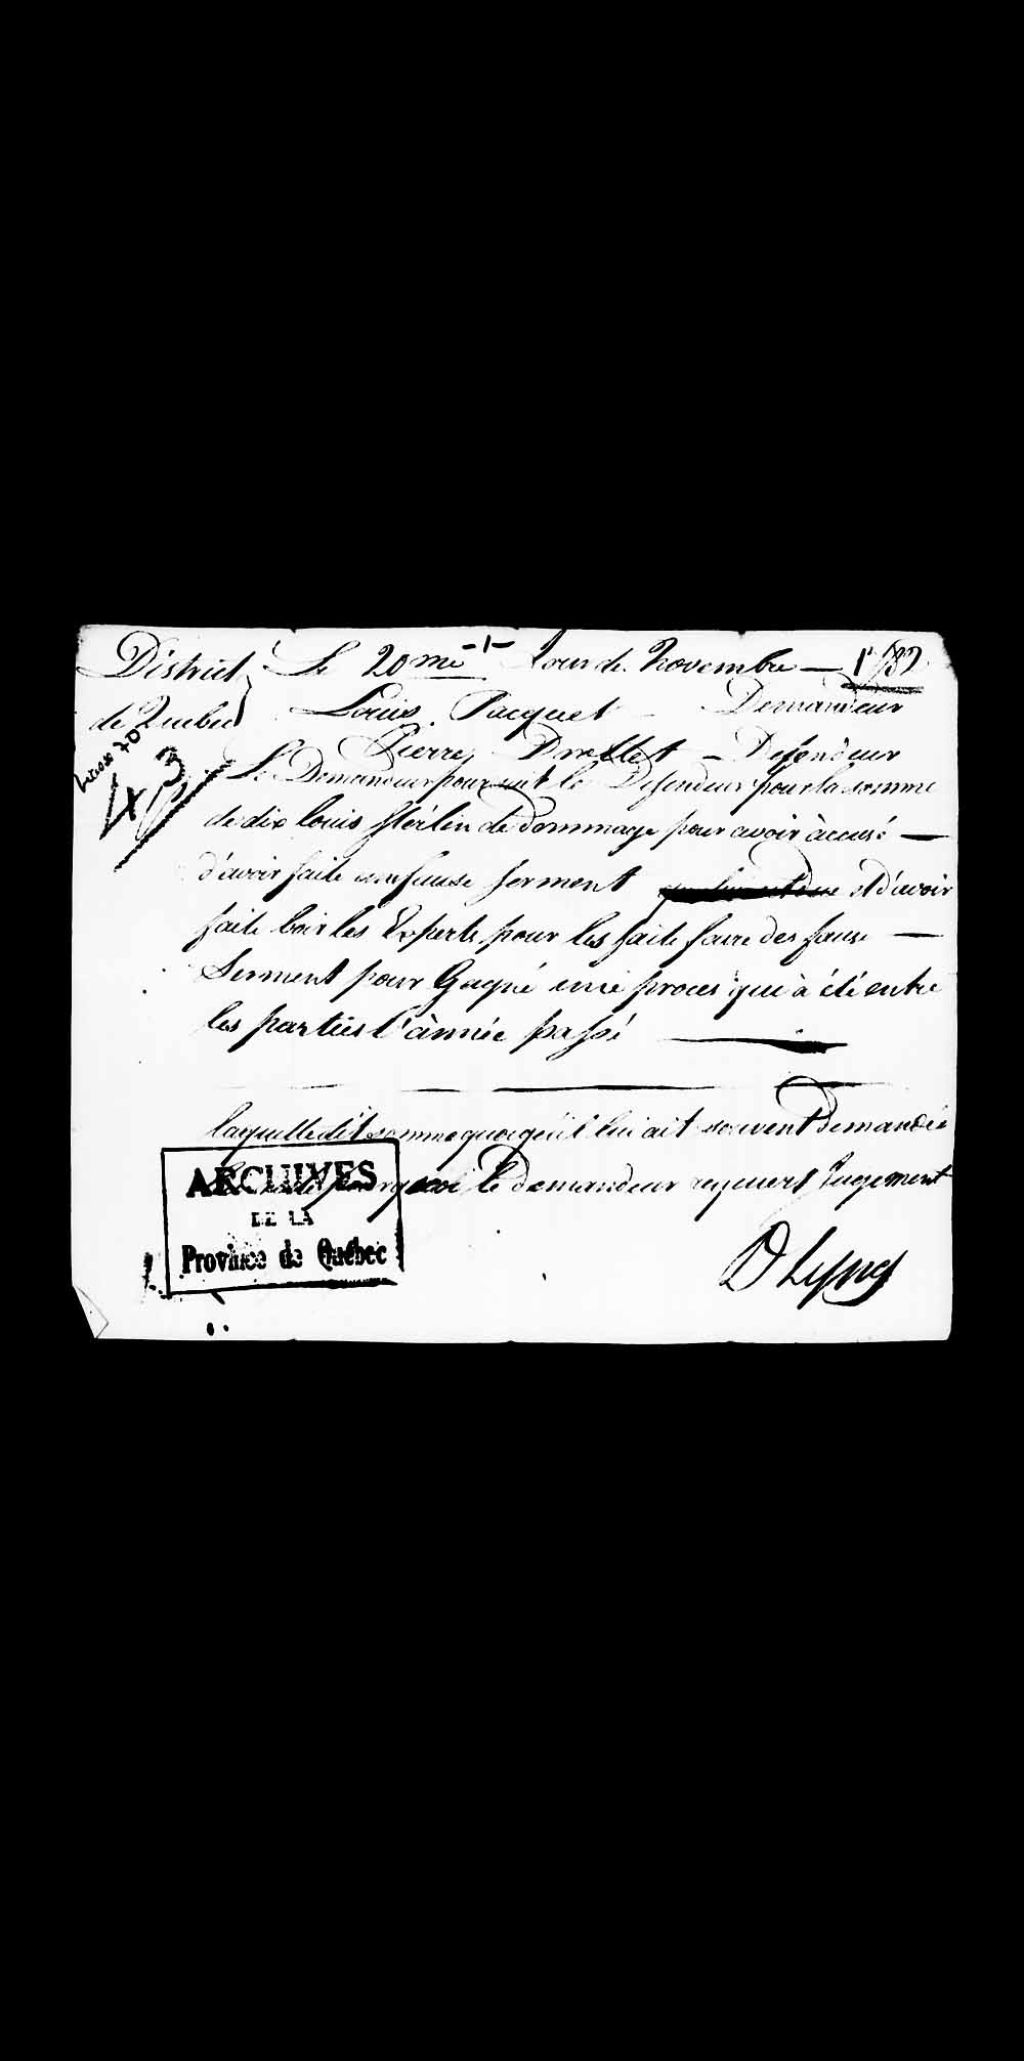 District Le 20me -1- Jour de Novembre — 1782
de Quebec Louis Pacquet — Demandeur
Pierre Drollet — Defendeur
43
Le Demandeur poursuit le Defendeur pour la somme
de dix louis sterlin de dommage pour avoir àccusé —
d'avoir faite un fause serment et d'avoir
faite boir les Experts pour les faite faire des fause —
Serment pour Gagné une proces qui à été entre
les parties l'ànnée passé
laquelle dit somme quoiqu'il lui ait souvent Demandée
pourquoi le demandeur requiers Jugement
ARCHIVES
DE LA
Province de Québec
D Lynd